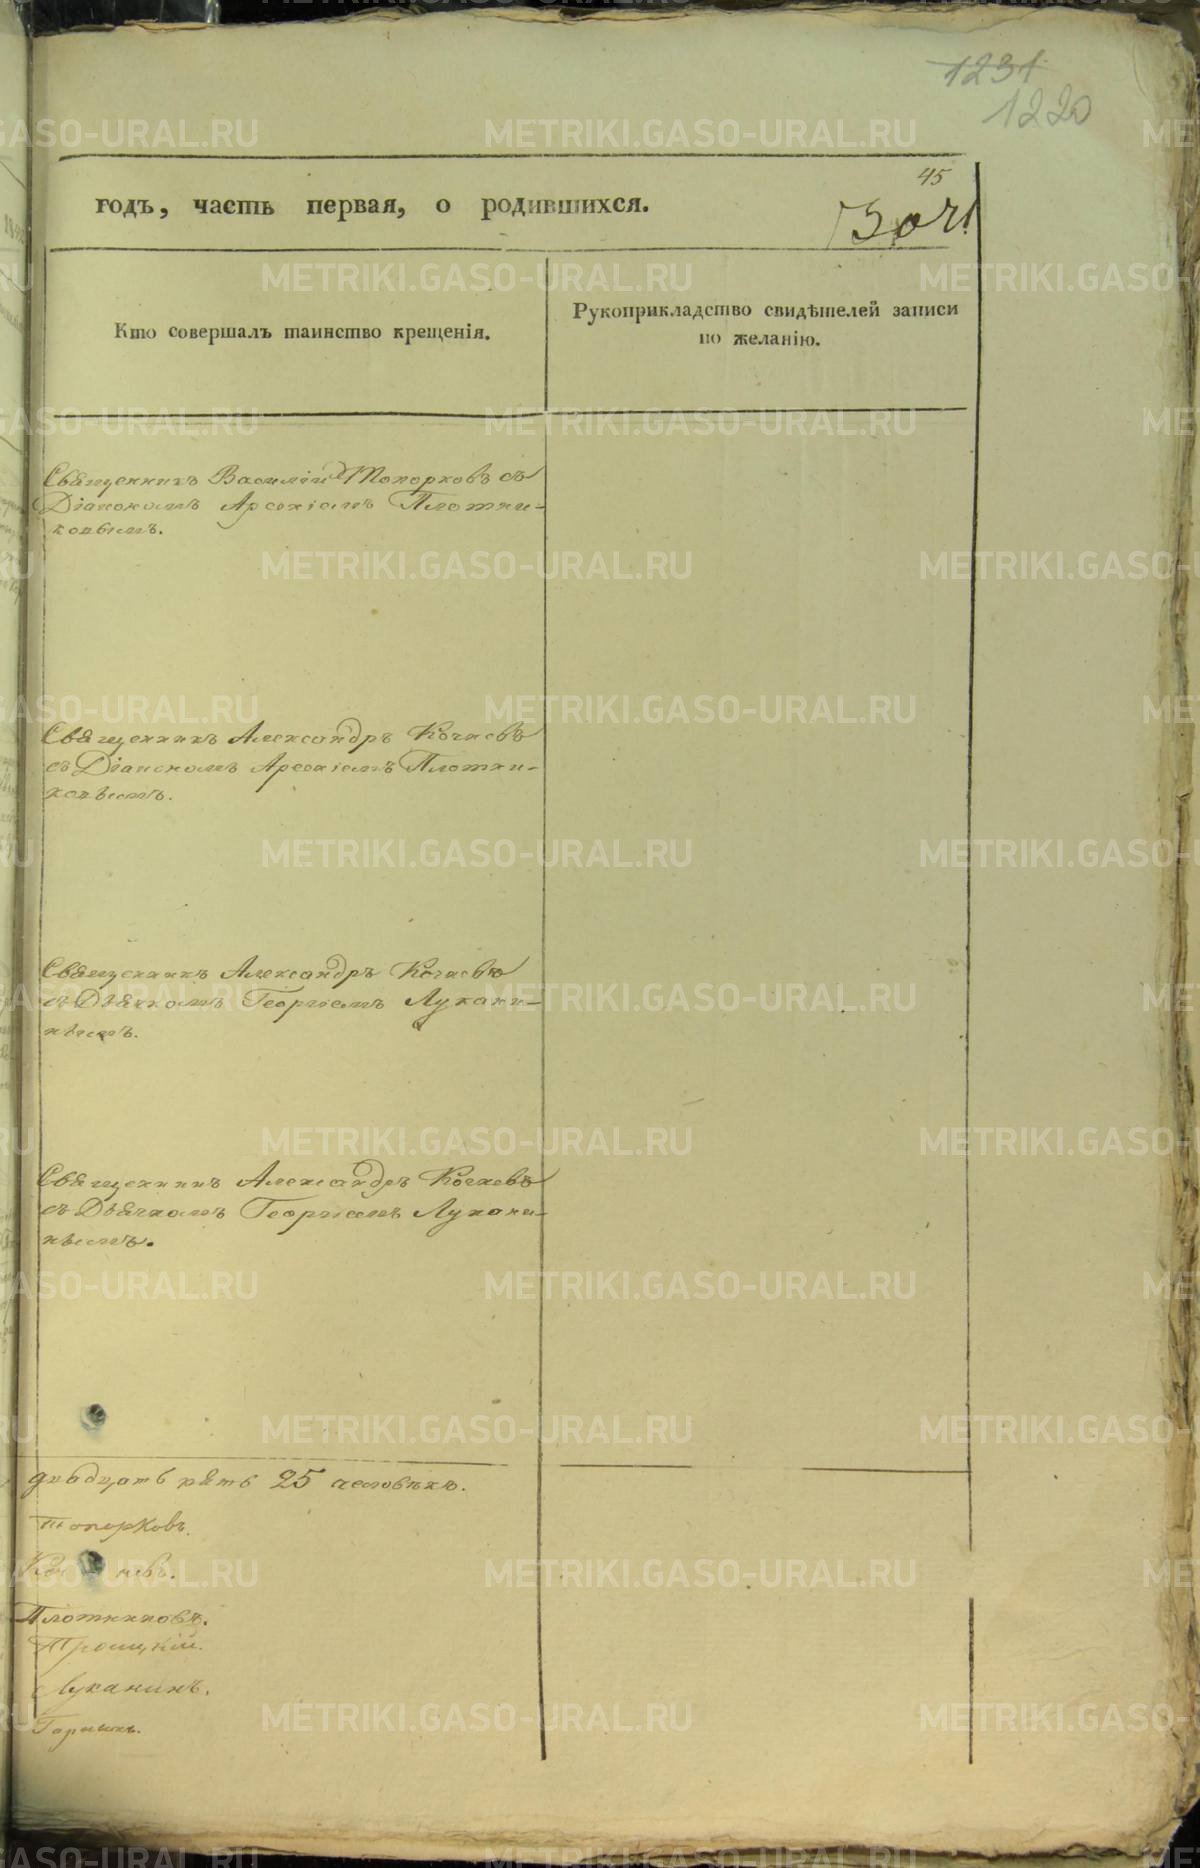 1231
1220
45
годъ, часть первая, о родившихся.
Кто совершалъ таинство крещенія.
Рукоприкладство свидѣтелей записи
по желанію.
Священникъ Василій Топорковъ съ
Діакономъ Арсеніемъ Плотни-
ковымъ.
Священникъ Александръ Кочневъ
съ Діакономъ Арсеніемъ Плотни-
ковымъ.
Священникъ Александръ Кочневъ
съ Дьячкомъ Георгіемъ Лукани-
нымъ.
Священникъ Александръ Кочневъ
съ Дьячкомъ Георгіемъ Лукани-
нымъ.
двадцать пять 25 человѣкъ.
Топорковъ.
Кочневъ.
Плотниковъ.
Троицкій.
Луканинъ.
METRIKI.GASO-URAL.RU